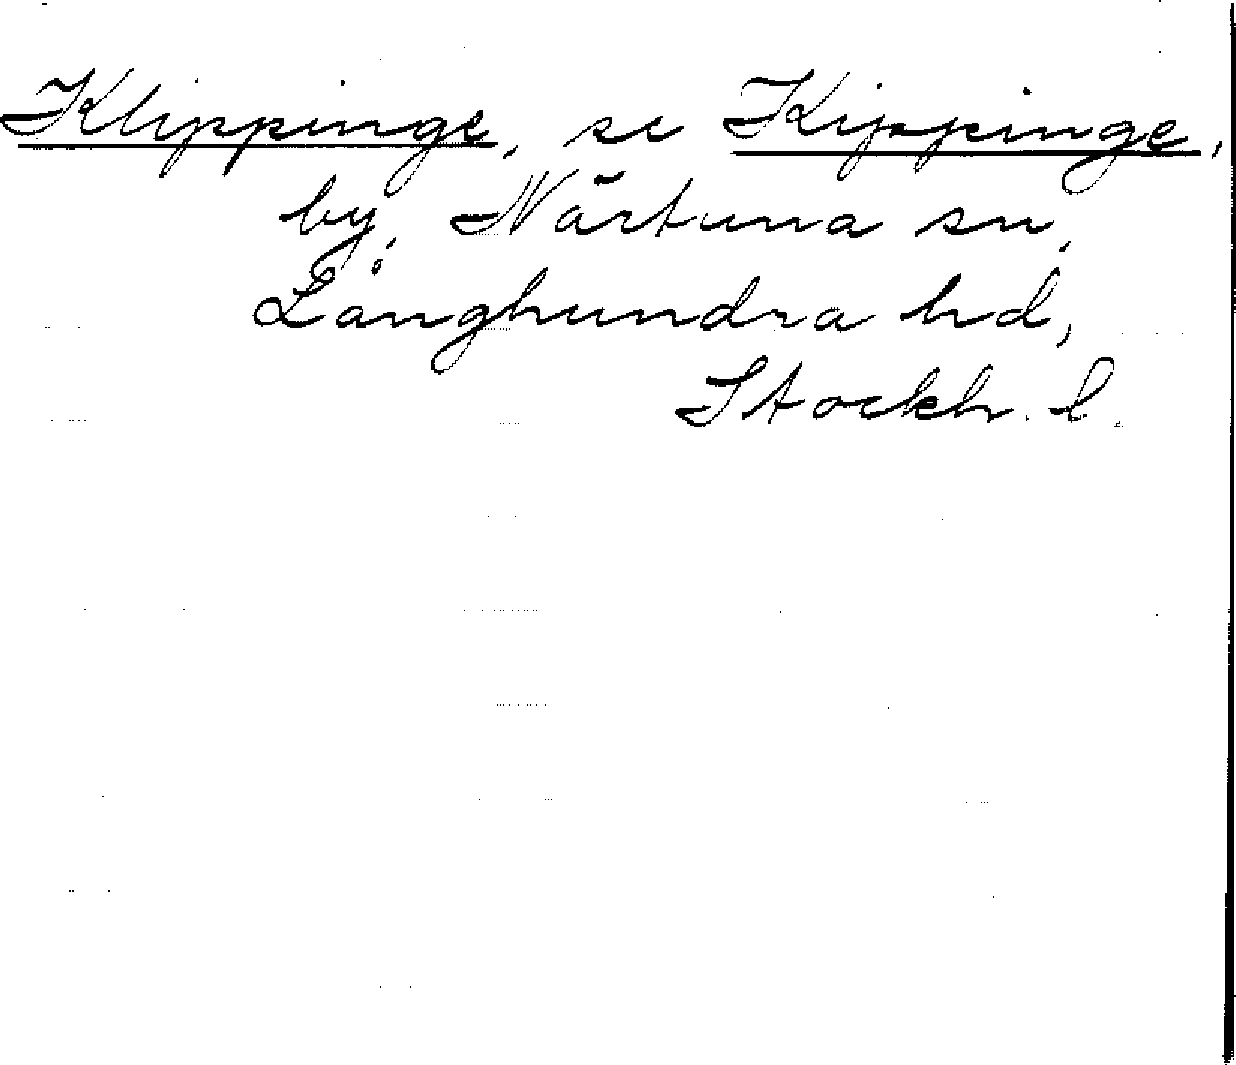 Klippinge, se Kippinge,
by, Närtuna sn,
Långhundra hd,
Stockh. l.